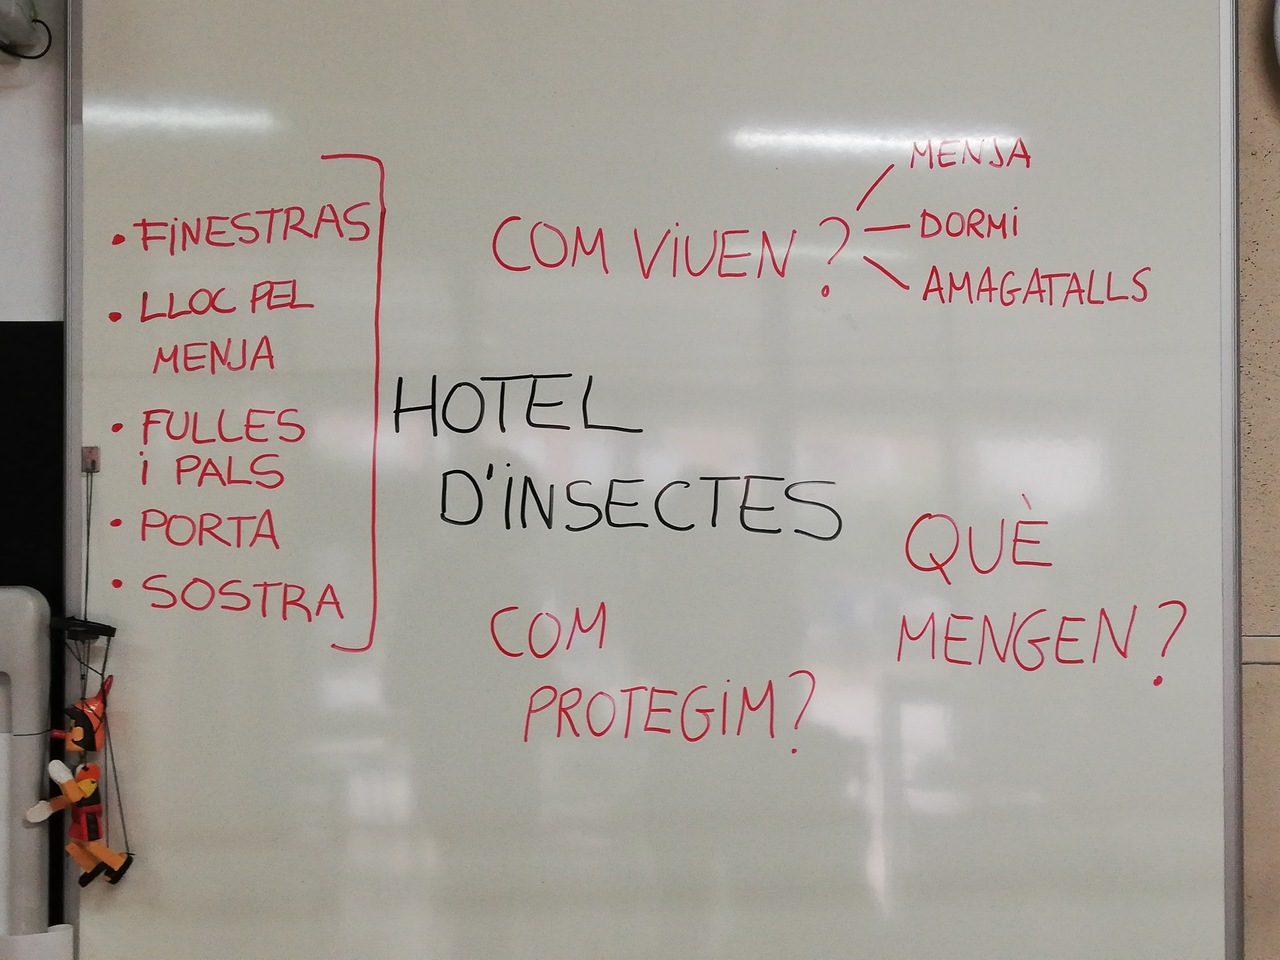 • FINESTRAS
• LLOC PEL
MENJA
• FULLES
I PALS
• PORTA
• SOSTRA
COM VIUEN?
MENJA
DORMI
AMAGATALLS
HOTEL
D'INSECTES
COM
PROTEGIM?
QUÈ
MENGEN?